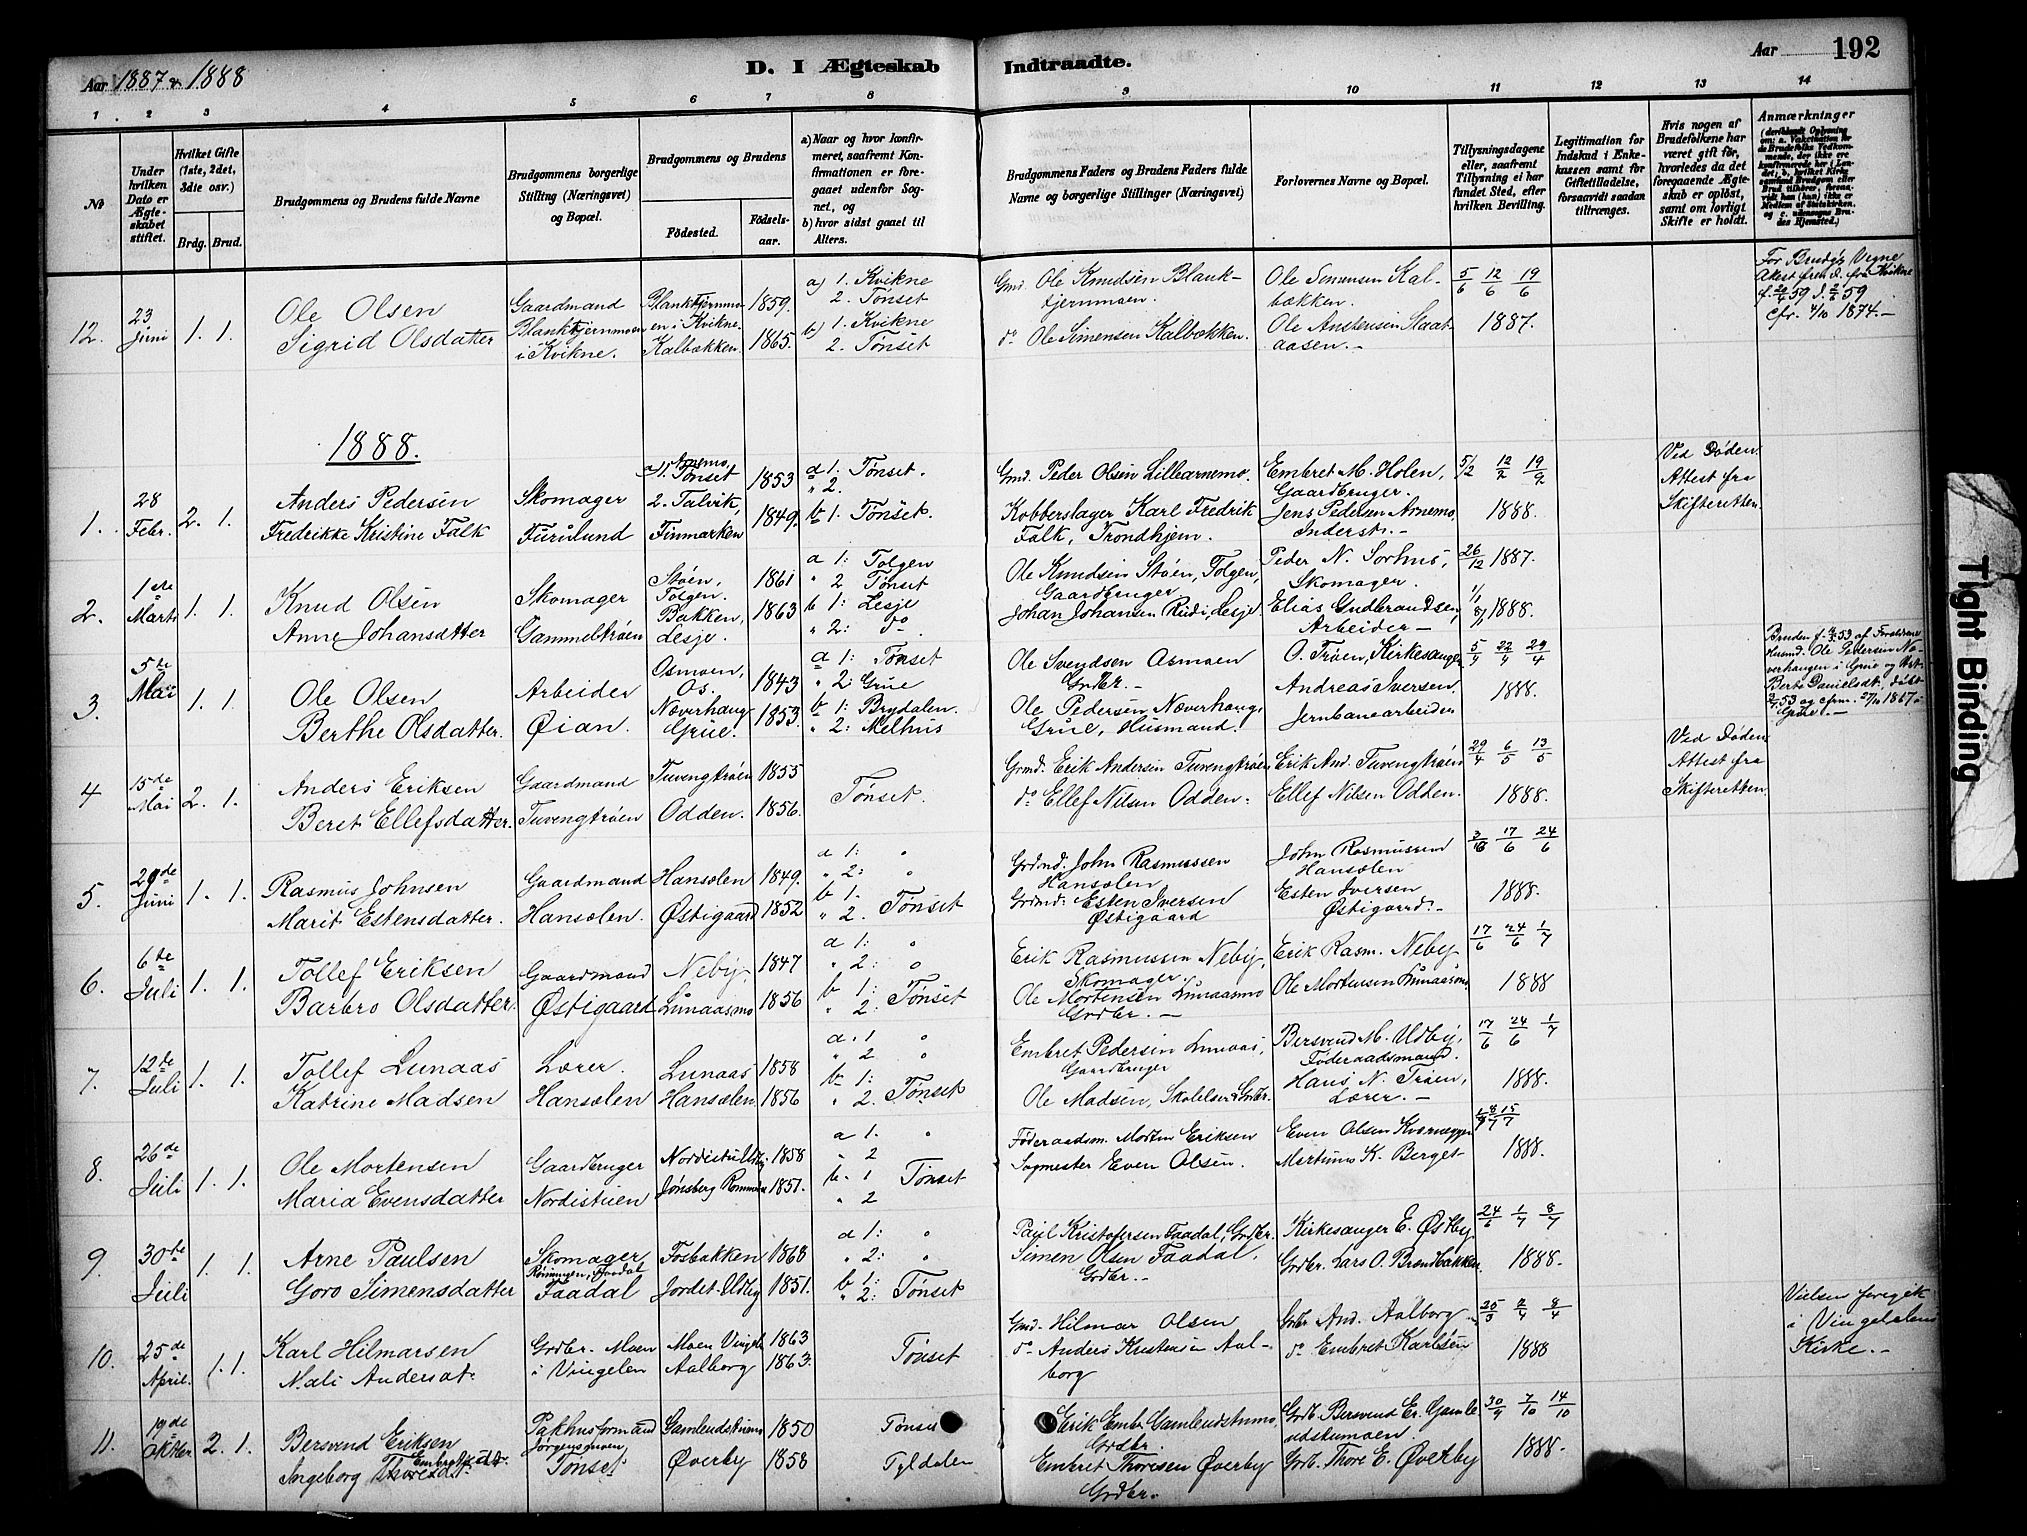 Aar 1887 & 1888
D. I Ægteskab Indtraadte.
Aar 192
1. 2 3 4 5 6 7 8 9 10 11 12 13 14
No
Under hvilken Dato er Ægteskabet stiftet.
Hvilket Gifte (1ste, 2det, 3die osv.)
Brdg. Brud.
Brudgommens og Brudens fulde Navne
Brudgommens borgerlige Stilling (Næringsvei) og Bopæl.
Brudgommens og Brudens
Födested.
Födselsaar.
a) Naar og hvor konfirmeret, saafremt Konfirmationen er foregaaet udenfor Sognet, og
b) hvor sidst gaaet til Alters.
Brudgommens Faders og Brudens Faders fulde Navne og borgerlige Stillinger (Næringsvei)
Forlovernes Navne og Bopæl.
Tillysningsdagene eller, saafremt Tillysning ei har fundet Sted, efter hvilken Bevilling.
Legitimation for Indskud i Enkekassen samt for Giftetilladelse, forsaavidt saadan tiltrænges.
Hvis nogen af Brudefolkene har været gift før, hvorledes da det foregaaende Ægteskab er oplöst, samt om lovligt Skifte er holdt.
Anmærkninger
12. 23 Juni 1. 1.
Ole Olsen
Sigrid Olsdatter
Gaardmand
Blanktjernmoen
i Kvikne.
Blanktjernmoen i Kvikne. 1859.
Kalbækken. 1865.
a) 1. Kvikne
2. Tønset
b) 1. Kvikne
2. Tønset
Gmd. Ole Knudsen Blanktjernmoen.
do Ole Simensen Kalbækken.
Ole Simensen Kalbækken.
Ole Anstensen Slaataasen.
5/6 12/6 19/6
1887.
1888.
1. 28 Febr. 2. 1.
Anders Pedersen
Fredrikke Kristine Falk
Skomager
Furulund
Tønset 1853
2. Talvik, Finmarken 1849.
a 1. Tønset.
" 2.
b 1. Tønset.
Gmd. Peder Olsen Lillearnemo.
Kobberslager Karl Fredrik Falk, Trondhjem.
Embret M. Holen, Gaardbruger.
Jens Pedersen Arnemo, Inderst.
5/2 12/2 19/2
1888.
Ved Døden.
Attest fra
Skifteretten.
2. 1ste Marts 1. 1.
Knud Olsen
Anne Johansdatter
Skomager
Gammeltrøen
Støen, Tolgen. 1861
Bakken, Lesje. 1863
a 1: Tolgen
" 2 Tønset
b 1: Lesje
" 2: do
Ole Knudsen Støen, Tolgen, Gaardbruger
Johan Johansen Rudi, Lesje
Peder N. Sorhus, Skomager.
Elias Gudbrandsen, Arbeider
26/12 1887.
1/1 8/1 1888.
3. 5te Mai 1. 1.
Ole Olsen
Berthe Olsdatter.
Arbeider
Øian.
Osmoen, Os. 1843
Næverhaug Grue. 1853.
a 1: Tønset
" 2: Grue
b 1: Brydalen.
" 2: Melhus
Ole Svendsen Osmoen Grdbr.
Ole Pedersen Næverhaug, Grue, Husmand.
O. Trøen, Kirkesanger
Andreas Iversen, Jernbanearbeider
1888.
4 15de Mai 2. 1.
Anders Eriksen
Beret Ellefsdatter.
Gaardmand
Tuvengtrøen
Tuvengtrøen 1855
Odden. 1856.
Tønset.
Grmd. Erik Andersen Tuvengtrøen
do Ellef Nilsen Odden.
Erik And. Tuvengtrøen
Ellef Nilsen Odden.
29/4 6/5 13/5
1888.
Ved Døden
Attest fra
Skifteretten.
5. 29de Juni 1. 1.
Rasmus Johnsen
Marit Estensdatter.
Gaardmand
Hansølen.
Hansølen 1849.
Østigaard 1852
a 1:
" 2:
b 1.
" 2. Tønset
Grdmd. John Rasmussen Hansølen
Grdmd: Esten Iversen Østigaard
John Rasmussen Hansølen
Esten Iversen Østigaard.
17/6 24/6
1888.
6. 6te Juli 1. 1.
Tollef Eriksen
Barbro Olsdatter.
Gaardmand
Østigaard
Neby, 1847
Lunaasmo 1856
a 1:
" 2:
b 1:
" 2: Tønset
Erik Rasmussen Neby, Skomager.
Ole Mortensen Lunaasmo Grdbr.
Erik Rasm. Neby
Ole Mortensen Lunaasmo
17/6 24/6 1/7
1888
7. 12te Juli 1. 1.
Tollef Lunaas
Katrine Madsen
Lærer.
Hansølen
Lunaas 1858
Hansølen. 1856
a. 1
" 2
b 1:
" 2. Tønset
Embret Pedersen Lunaas, Gaardbruger
Ole Madsen,
Bersvend M. Udby, Føderaadsmand.
Hans N. Trøen, Lærer.
17/6 24/6 1/7
1888.
8. 26de Juli 1. 1.
Ole Mortensen
Maria Evensdatter
Gaardbruger
Nordistuen
1858
Jønsberg 1851.
a 1.
" 2
b. 1
" 2 Tønset
Føderaadsm. Morten Eriksen
Sogmester Even Olsen.
Even Olsen
K. Berget
1888.
9. 30te Juli 1. 1.
Arne Paulsen
Goro Simensdatter
Skomager
Faadal
Fosbakken 1868
Jordet Udby 1851.
a 1:
" 2:
b 1:
" 2: Tønset
Paul Kristofersen Faadal, Grdbr.
Simen Olsen Faadal. Grdbr.
Kirkesanger E. Østby
Grdbr. Lars O. Brendbakken.
24/6 1/7 8/7
1888.
10. 25de April. 1. 1.
Karl Hilmarsen
Mali Andersdt.
Grdbr. Moen
i Vingelen
Moen 1863
Aalborg 1863.
Tønset
Gmd. Hilmar Olsen
do Anders Kristensen Aalborg
Grdbr And. Aalborg
do Embret Karlsen
1888
Vielsen foregik
i Vingelens
Kirke.
11. 19de Oktber 2. 1.
Bersvend Eriksen
Ingeborg Embretsdt.
Pakhusformand
Jørgensmoen,
Tønset
Gamleudstumo 1850
Øverby 1858
Tønset
Tyldalen
Erik Embr. Gamleudstumo, Grdbr.
Embret Thoresen Øverby Grdbr.
Grdb. Bersvend Er. Gamleudstumoen.
Grdb. Thore E. Øverby
30/9 7/10 14/10
1888.
Tight Binding